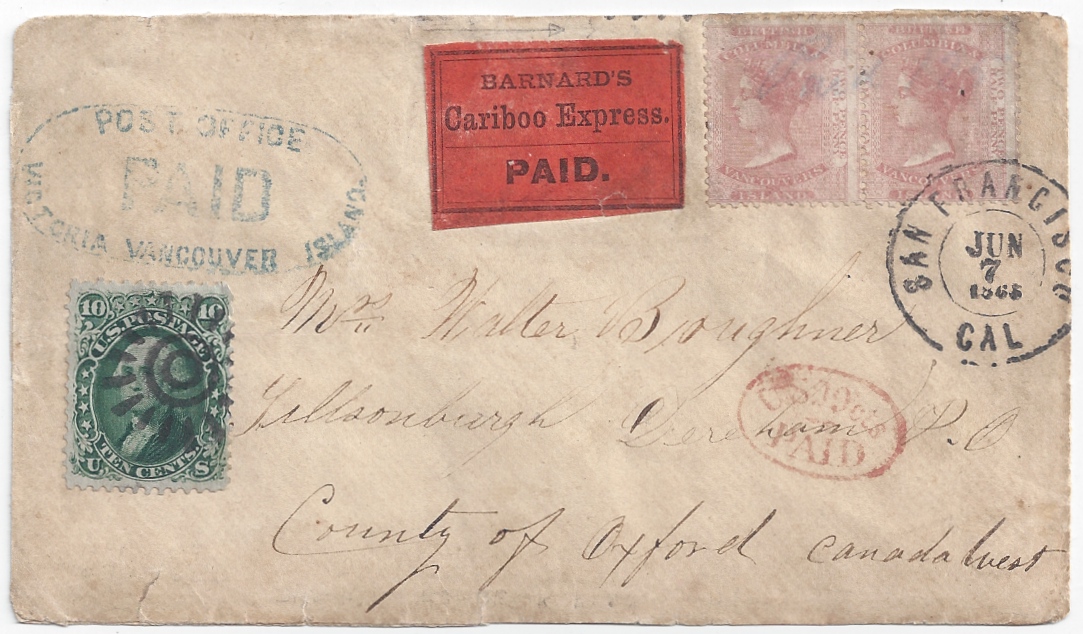 BARNARD'S
Cariboo Express.
PAID.
BRITISH
COLUMBIA &
VANCOUVERS
ISLAND
TWO PENCE
HALFPENNY
BRITISH
COLUMBIA &
VANCOUVERS
ISLAND
POST OFFICE
PAID
VICTORIA VANCOUVER ISLAND.
SAN FRANCISCO
JUN
7
CAL
10 10
U.S. POSTAGE
TEN CENTS.
U S
Mrs. Walter Boughner
Tillsonburgh Dereham P.O
U.S. 10cts
PAID
County of Oxford Canada West